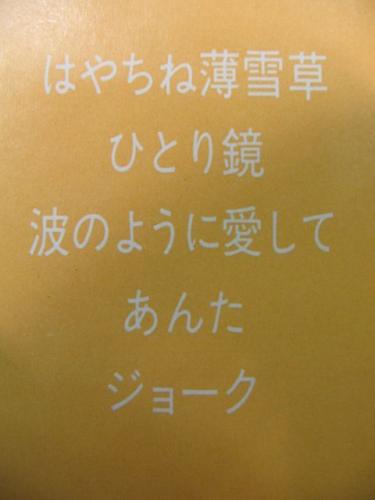 はやちね薄雪草
ひとり鏡
波のように愛して
あんた
ジョーク